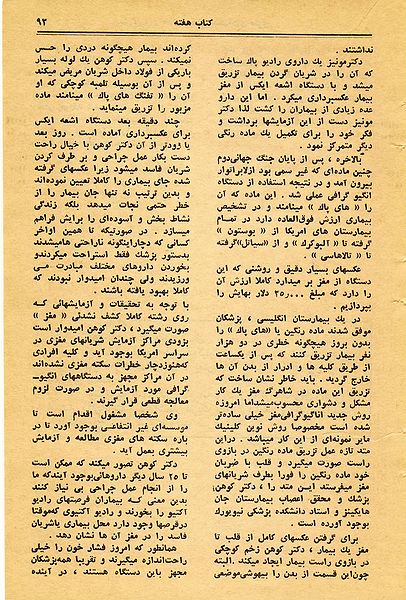 کتاب هفته ۹۲
نداشتند.
دکترمونیز یك داروی رادیو پاك ساخت
که آن را در شریان گردن بیمار تزریق
میشد و با دستگاه اشعه ایکس از مغز
بیمار عکسبرداری میکرد. اما این دارو
عده زیادی از بیماران را کشت لذا دکتر
مونیز دست از این آزمایشها برداشت و
فکر خود را برای تکمیل یك ماده رنگی
دیگر متمرکز نمود.
بالاخره، پس از پایان جنگ جهانی‌دوم
چنین ماده‌ای که غیر سمی بود ازلابراتوار
بیرون آمد و در نتیجه استفاده از دستگاه
انگیو گرافی عملی شد. این ماده که آن
را «های پاك» مینامند و در تشخیص
بیماری ارزش فوق‌العاده دارد در تمام
بیمارستان های امریکا از «بوستون»
گرفته تا «آلبوکرك» و از «سیاتل» گرفته
تا «تالاهاسی».
عکسهای بسیار دقیق و روشنی که این
دستگاه از مغز بر میدارد کاملا ارزش آن
را دارد که مبلغ ۳۵٫۰۰۰ دلار بهایش را
بپردازیم.
در یك بیمارستان انگلیسی، پزشکان
موفق شدند ماده رنگین یا «های پاك» را
بدون بروز هیچگونه خطری در دو هزار
نفر بیمار تزریق کنند که پس از یکساعت
از طریق کلیه ها و ادرار از بدن آن ها
خارج گردید. باید خاطر نشان ساخت که
تزریق این ماده در شاهرگ مغز یك کار
مشکل و دشواری محسوب‌میشداما امروزه
روش جدید اناگیوگرافی‌مغز خیلی ساده‌تر
شده است مخصوصا روش نوین کلینیك
مایر نمونه‌ای از این کار میباشد. دراین
متد تازه عمل تزریق ماده رنگین در بازوی
راست صورت میگیرد و قلب با ضربان
خود ماده رنگین را فورا بطرف شریانهای
مغز میفرستد این متد را، دکتر کوهن
پزشك و محقق اعصاب بیمارستان جان
هاپکینز و استاد دانشکده پزشکی نیویورك
بوجود آورده است.
برای گرفتن عکسهای کامل از قلب تا
مغز یك بیمار، دکتر کوهن زخم کوچکی
در بازوی راست بیمار ایجاد میکند. البته
چون‌این قسمت از بدن را بیهوشی‌موضعی
کرده‌اند بیمار هیچگونه دردی را حس
نمیکند. سپس دکتر کوهن یك لوله بسیار
باریکی از فولاد داخل شریان مریض میکند
و پس از آن بوسیله تلمبه کوچکی که او
آن را «تفنگ های پاك» مینامند ماده
مزبور را تزریق مینماید.
چند دقیقه بعد دستگاه اشعه ایکس
برای عکسبرداری آماده است. روز بعد
یا زودتر از آن دکتر کوهن با خیال راحت
دست بکار عمل جراحی و بر طرف کردن
شریان فاسد میشود زیرا عکسهای گرفته
شده جای بیماری را کاملا تعیین نموده‌اند
و بدین ترتیب نه تنها جان بیمار را از
خطر حتمی نجات میدهد بلکه زندگی
نشاط بخش و آسوده‌ای را برایش فراهم
میسازد. در صورتیکه تا همین اواخر
کسانی که دچاراینگونه ناراحتی هامیشدند
بدستور پزشك فقط استراحت میکردندو
بخوردن داروهای مختلف مبادرت می
ورزیدند ولی چندان امیدوار نبودند که
کاملا بهبود یافته باشند.
با توجه به تحقیقات و آزمایشهائی که
روی رشته کاملا کشف نشدنی «مغز»
صورت میگیرد، دکتر کوهن امیدوار است
بزودی مراکز آزمایش شریانهای مغزی در
سراسر امریکا بوجود آید و کلیه افرادی
که‌هنوزدچار خطرات سکته مغزی نشده‌اند
در آن مراکز مجهز به دستگاههای انگیو-
گرافی مورد آزمایش و در صورت لزوم
معالجه قطعی قرار گیرند.
وی شخصا مشغول اقدام است تا
موسسه‌ای غیر انتفاعی بوجود آورد تا در
باره سکته های مغزی مطالعه و آزمایش
بیشتری بعمل آید.
دکتر کوهن تصور میکند که ممکن است
تا ۲۵ سال دیگر داروهائی‌بوجود آیندکه ما
را از انجام عمل جراحی بی نیاز کنند
بدین معنی که بیماران قرصهای رادیو
آکتیو را بخورند و رادیو آکتیوی که‌موقتا
درقرصها وجود دارد محل بیماری یاشریان
فاسد را در مغز آن ها نشان دهد.
همانطور که امروز فشار خون را خیلی
راحت‌اندازه میگیرند و تقریبا همه‌پزشکان
مجهز باین دستگاه هستند، در آینده